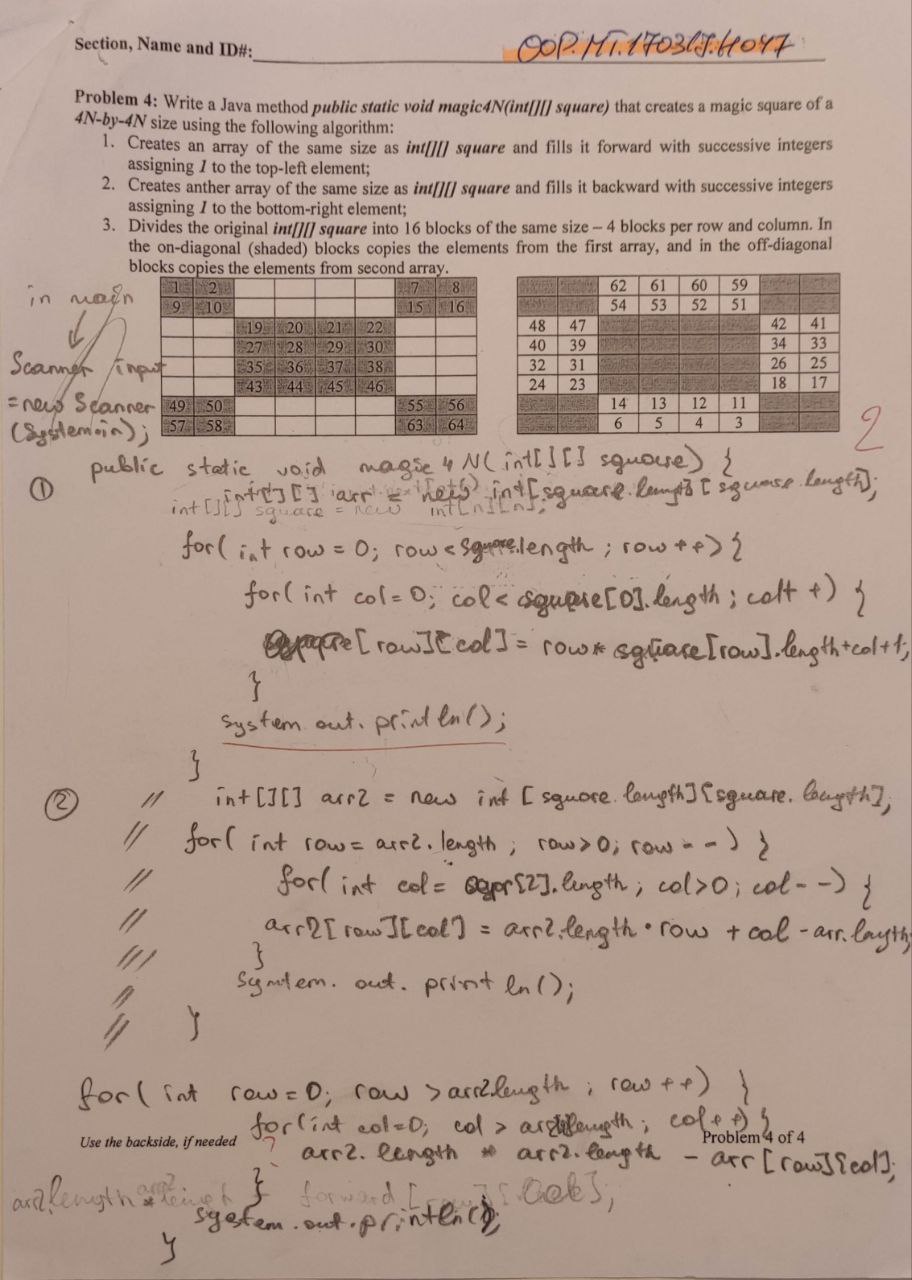 Section, Name and ID#: OOP.MT.170315.H047
Problem 4: Write a Java method public static void magic4N(int[][] square) that creates a magic square of a
4N-by-4N size using the following algorithm:
1. Creates an array of the same size as int[][] square and fills it forward with successive integers
assigning 1 to the top-left element;
2. Creates anther array of the same size as int[][] square and fills it backward with successive integers
assigning 1 to the bottom-right element;
3. Divides the original int[][] square into 16 blocks of the same size – 4 blocks per row and column. In
the on-diagonal (shaded) blocks copies the elements from the first array, and in the off-diagonal
blocks copies the elements from second array.
1 2 7 8 62 61 60 59
9 10 15 16 54 53 52 51
19 20 21 22 48 47 42 41
27 28 29 30 40 39 34 33
35 36 37 38 32 31 26 25
43 44 45 46 24 23 18 17
49 50 55 56 14 13 12 11
57 58 63 64 6 5 4 3
in main
Scanner input
= new Scanner
(System.in);
2
public static void magic4N(int[][] square) {
① int[][] arr = new int[square.length][square.length];
int[][] square = new int[n][n];
for( int row = 0; row < square.length ; row++) {
for( int col = 0; col < square[0].length ; col++) {
square[row][col] = row * square[row].length+col+1;
}
system.out.println();
}
② // int[][] arr2 = new int [square.length][square.length];
// for( int row = arr2.length ; row>0; row--) {
// for( int col = [2].length ; col>0; col--) {
// arr2[row][col] = arr2.length • row + col - arr.length
// }
// System. out. println();
// }
for( int row = 0; row > arr2.length ; row ++) {
for(int col=0; col > length; col++) {
Use the backside, if needed Problem 4 of 4
? arr2. length * arr2. length - arr [row][col];
} forward [row][col];
arr2.length * arr2.length
system.out.println();
}